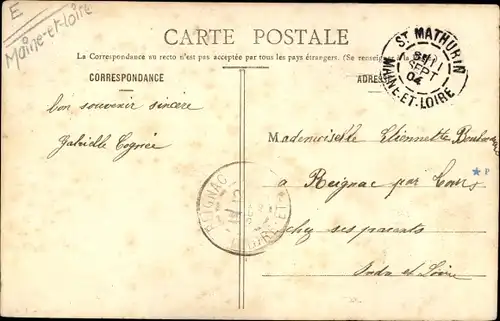 E
Maine-et-Loire
CARTE POSTALE
La Correspondance au recto n'est pas acceptée par tous les pays étrangers. (Se renseigner à la
CORRESPONDANCE
ADRES
ST MATHURIN
SEPT
04
MAINE-ET-LOIRE
bon souvenir sincère
Gabrielle Cognée
Mademoiselle Etiennette
à Reignac par
chez ses parents
Indre et Loire
REIGNAC
P